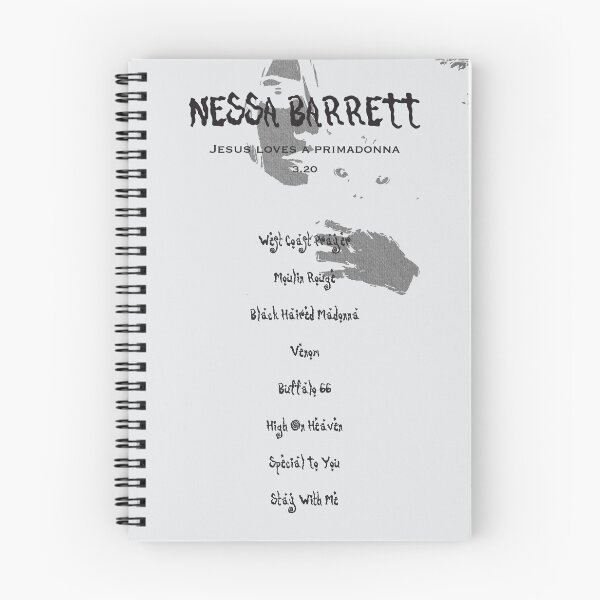 Nessa Barrett
Jesus loves a primadonna
3.20
West Coast Prayer
Moulin Rouge
Black Haired Madonna
Venom
Buffalo 66
High On Heaven
Special to You
Stay With Me